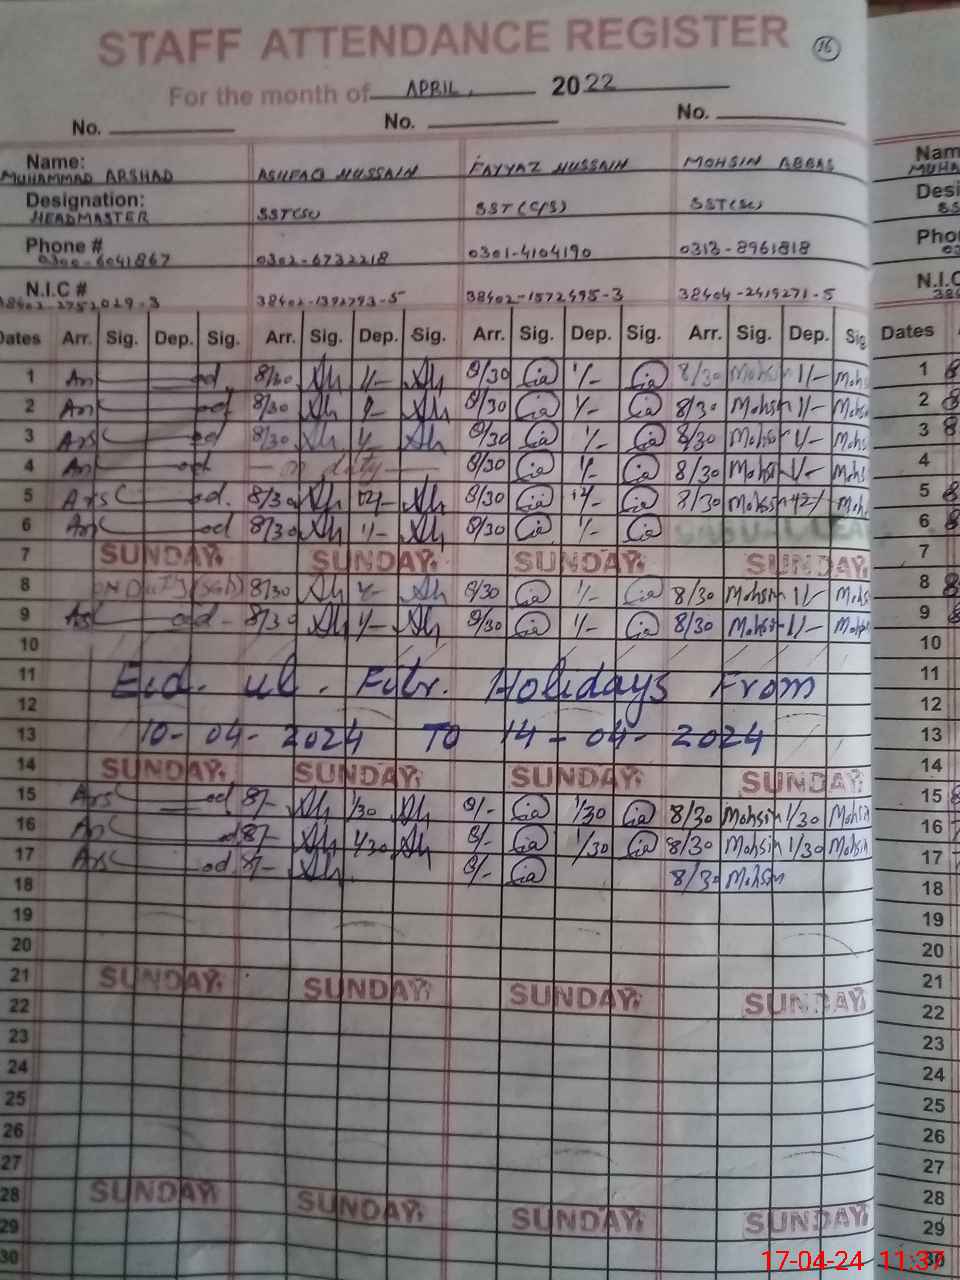 STAFF ATTENDANCE REGISTER 16
For the month of APRIL, 2022
No. No. No.
Name: Nam
MUHAMMAD ARSHAD ASHFAQ HUSSAIN FAYYAZ HUSSAIN MOHSIN ABBAS MUHA
Designation: Desi
HEADMASTER SST(SC) SST(C/S) SST(SC) SS
Phone # Pho
0300-6041867 0302-6732218 0301-4104190 0313-8961818
N.I.C # N.I.C
38402-2752029-3 38402-1392793-5 38402-1572495-3 38404-2419271-5
Dates Arr. Sig. Dep. Sig. Arr. Sig. Dep. Sig. Arr. Sig. Dep. Sig. Arr. Sig. Dep. Sig Dates
1 8/30 1/- 8/30 1/- 8/30 Mohsin 1/- Mohs 1
2 8/30 1/- 8/30 1/- 8/30 Mohsin 1/- Mohs 2
3 8/30 1/- 8/30 1/- 8/30 Mohsin 1/- Mohs 3
4 on duty 8/30 1/- 8/30 Mohsin 1/- Mohs 4
5 8/30 12/- 8/30 12/- 8/30 Mohsin 12/- Moh 5
6 8/30 1/- 8/30 1/- 6
7 SUNDAY. SUNDAY. SUNDAY. SUNDAY. 7
8 ON Duty 8/30 1/- 8/30 1/- 8/30 Mohsin 1/- Mohs 8
9 8/30 1/- 8/30 1/- 8/30 Mohsin 1/- Mohs 9
10 10
11 Eid. ul. Fitr. Holidays From 11
12 12
13 10-04-2024 TO 14-04-2024 13
14 SUNDAY. SUNDAY. SUNDAY. SUNDAY. 14
15 8/- 1/30 8/- 1/30 8/30 Mohsin 1/30 Mohsin 15
16 8/- 1/30 8/- 1/30 8/30 Mohsin 1/30 Mohsin 16
17 8/- 8/- 8/30 Mohsin 17
18 18
19 19
20 20
21 SUNDAY. SUNDAY. SUNDAY. SUNDAY. 21
22 22
23 23
24 24
25 25
26 26
27 27
28 SUNDAY. SUNDAY. SUNDAY. SUNDAY. 28
29 29
30 30
17-04-24 11:37